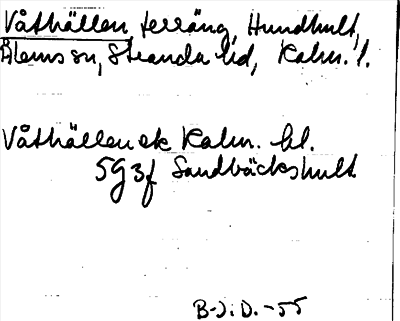 Våthällen, terräng, Hundhult,
Ålems sn, Stranda hd, Kalm. l.
Våthällen ek Kalm. bl.
5G3f Sandbäckshult
B-J.D. -55